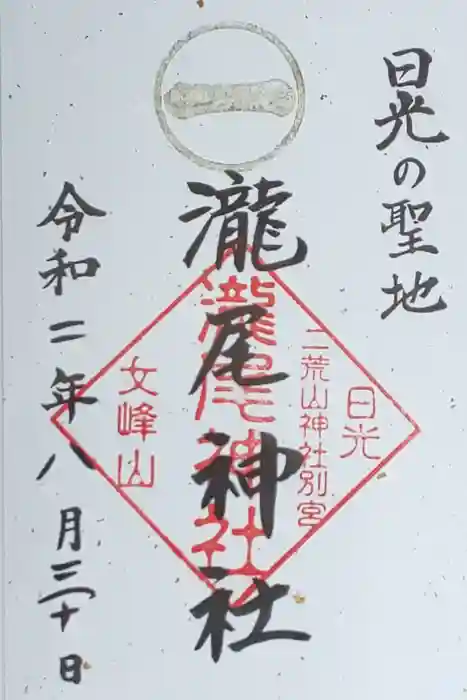 日光の聖地
瀧尾神社
令和二年八月三十日
日光
二荒山神社別宮
瀧尾神社
女峰山